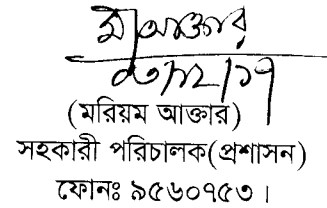 মআক্তার
(মরিয়ম আক্তার)
সহকারী পরিচালক(প্রশাসন)
ফোনঃ ৯৫৬০৭৫৩।